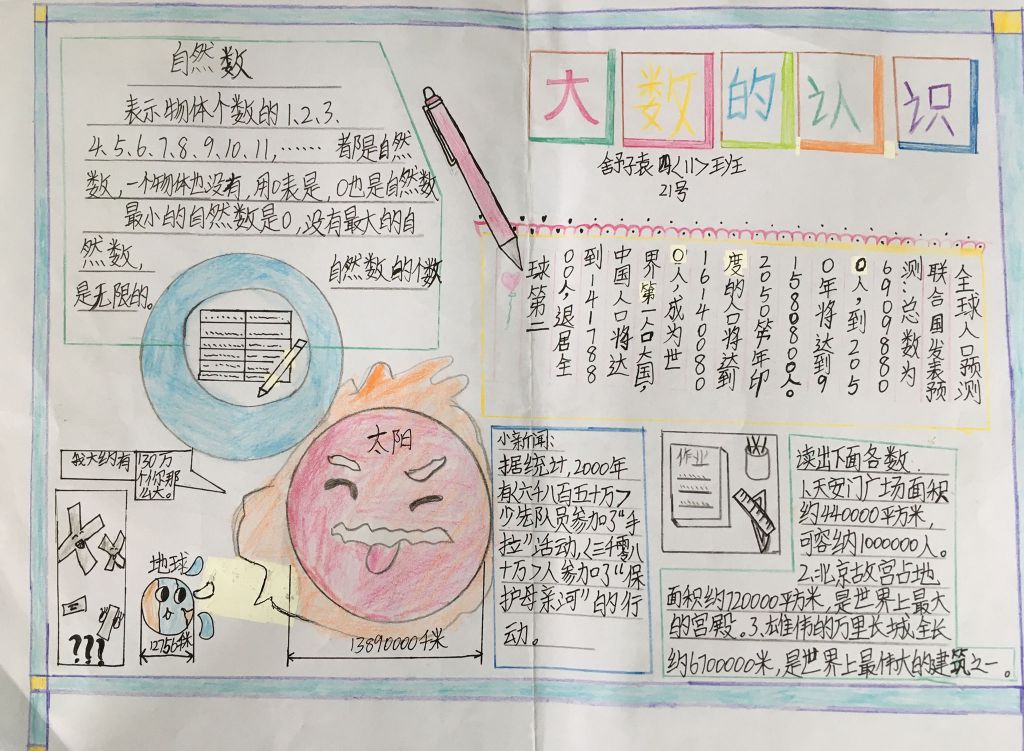 自然数
表示物体个数的1、2、3、
4、5、6、7、8、9、10、11,…… 都是自然
数,一个物体也没有,用0表是,0也是自然数
最小的自然数是0,没有最大的自
然数, 自然数的个数
是无限的。
大数的认识
舒子袁 四<11>班
21号
全球人口预测
联合国发表预
测:总数为
6909880
0人,到205
0年将达到9
1580800人。
度的人口将达到
16140080
0人,成为世
界第一人口大国,
中国人口将达
到141788
00人,退居全
球第二
太阳
我大约有130万
个你那
么大。
地球
???
12756千米
13890000千米
小新闻:
据统计,2000年
有<六千八百五十万>
少先队员参加了"手
拉"活动,<三千零八
十万>人参加了"保
护母亲河"的行
动。
作业
读出下面各数.
1、天安门广场面积
约440000平方米,
可容纳1000000人。
2.北京故宫占地
面积约720000平方米,是世界上最大
的宫殿。3.雄伟的万里长城全长
约6700000米,是世界上最伟大的建筑之一。